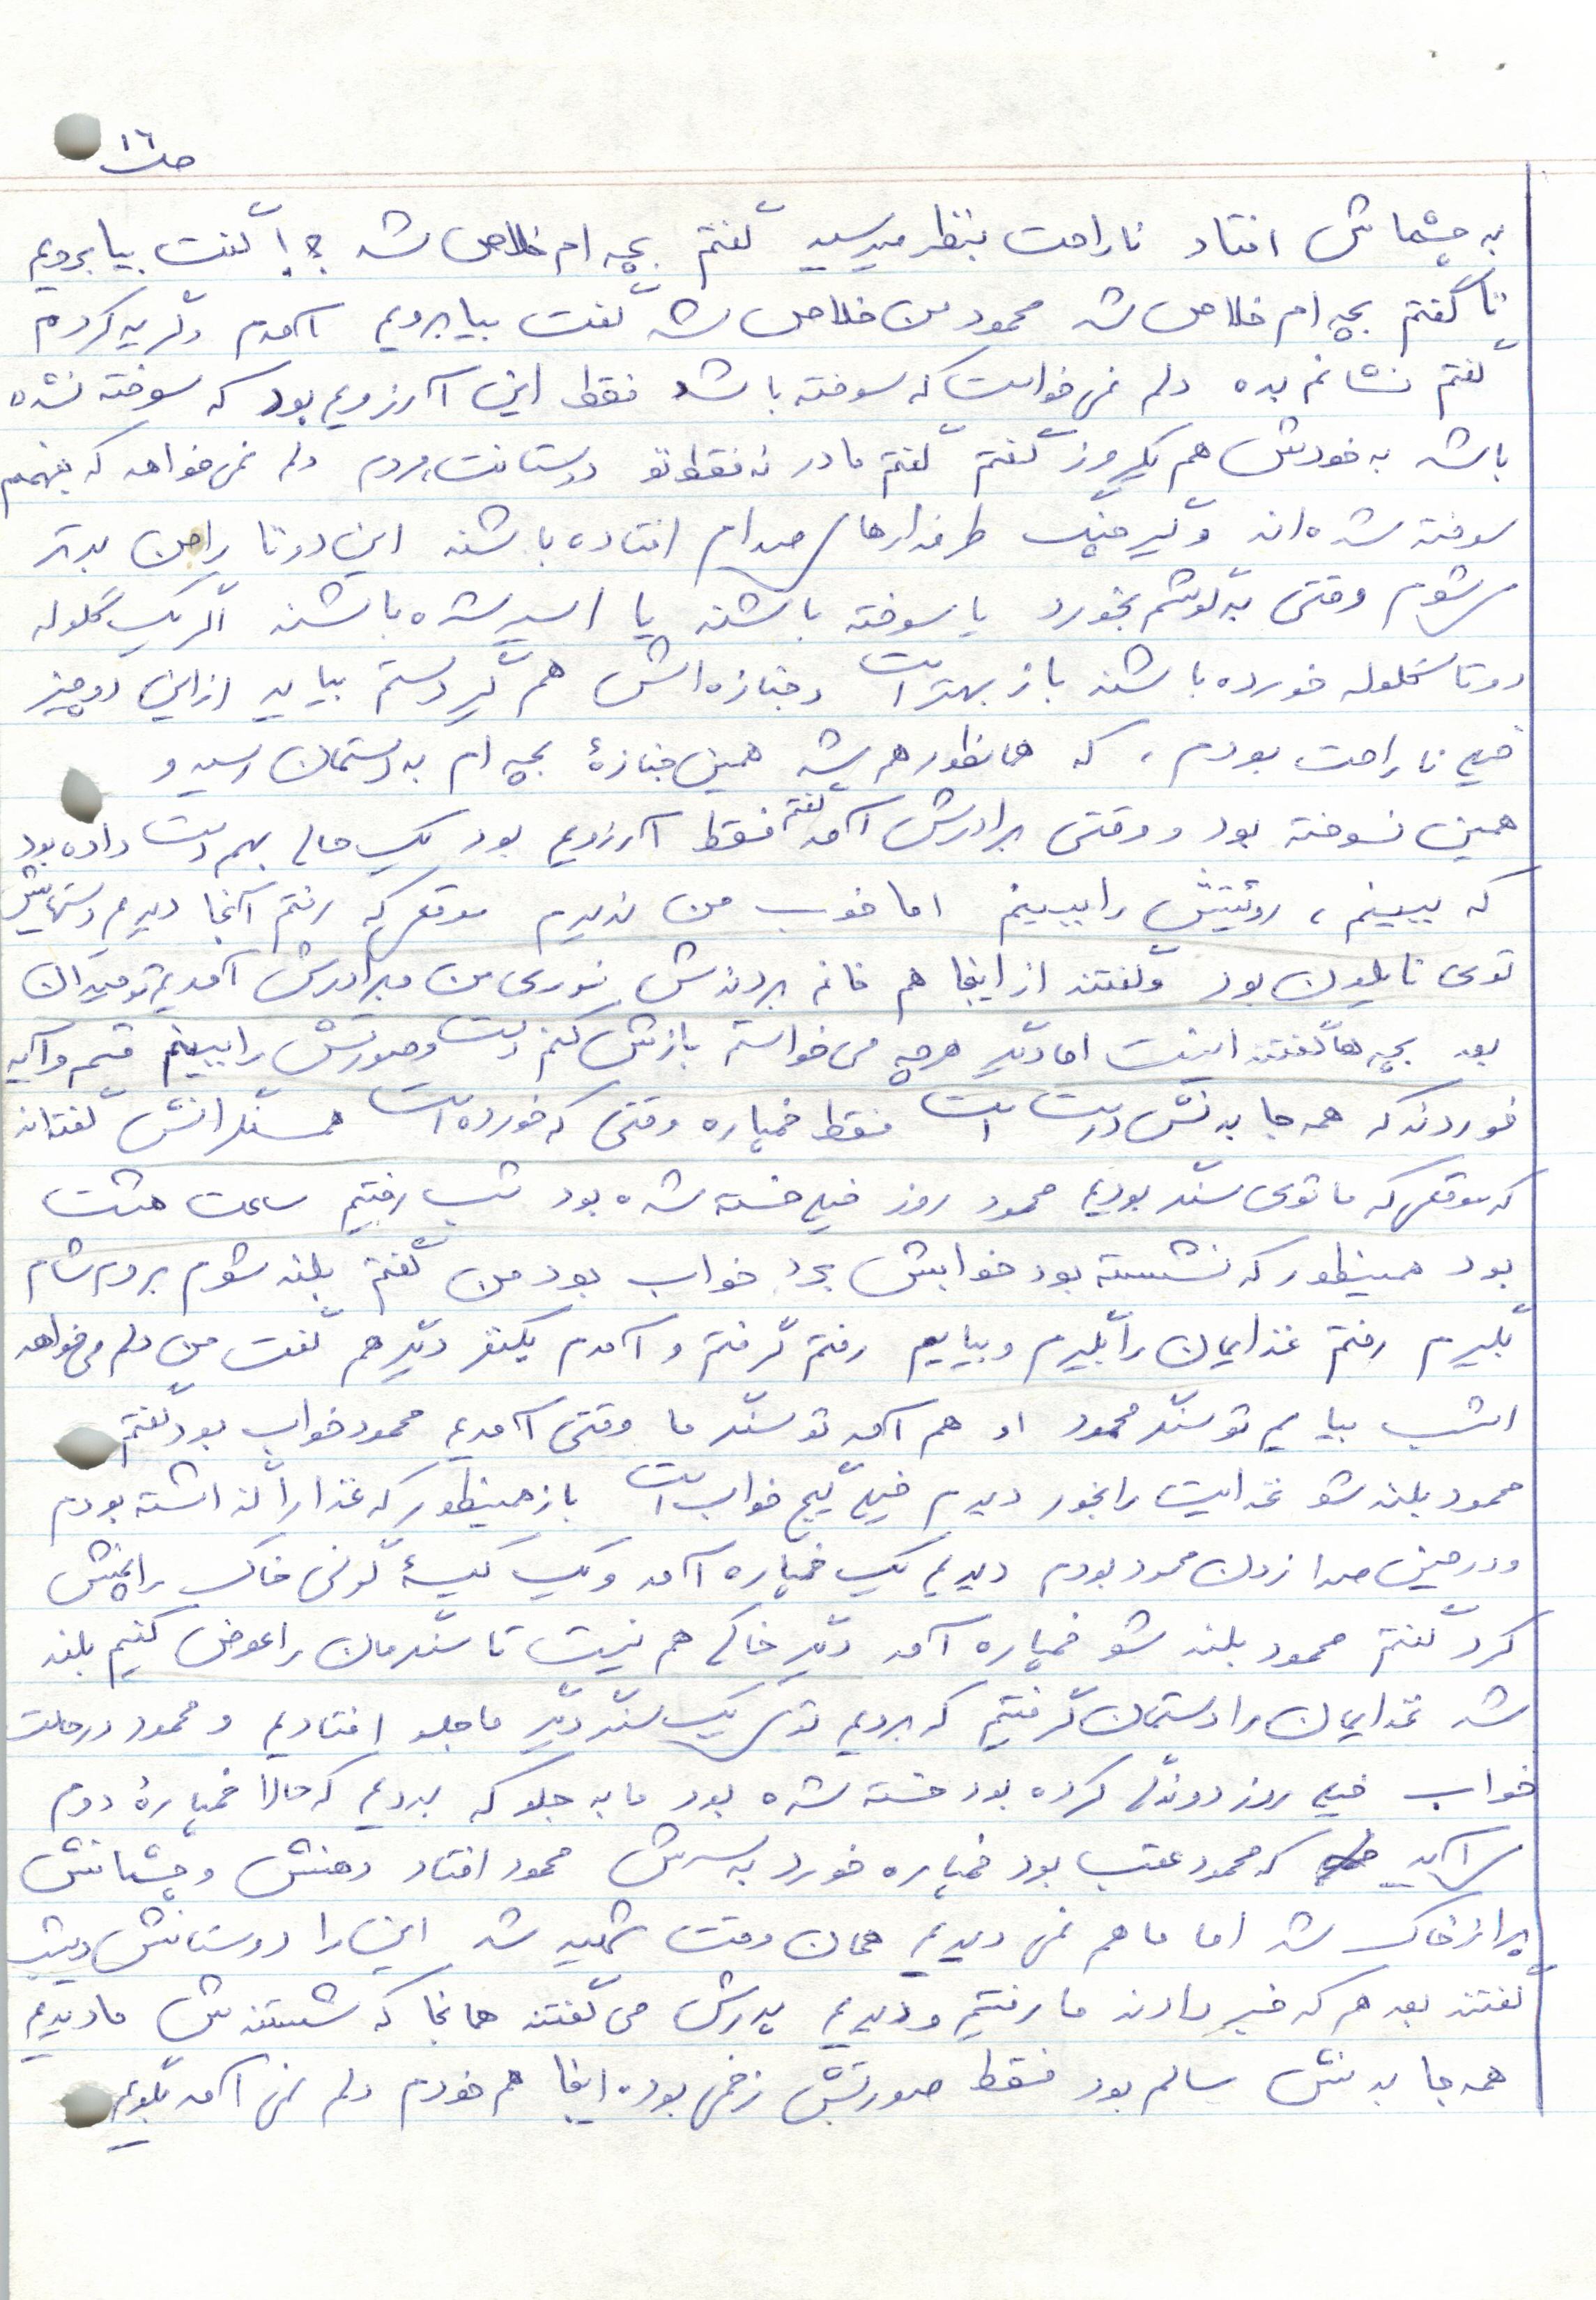 ص ۱۶
به چشماش افتاد ناراحت بنظر میرسید گفتم بچه ام خلاص شد ؟! گفت بیا برویم
تا گفتم بچه ام خلاص شد محمود من خلاص شد گفت بیا برویم آمدم و گریه کردم
گفتم نشانم بده دلم نمی خواست که سوخته باشد فقط این آرزویم بود که سوخته نشده
باشد به خودش هم یکروز گفتم گفتم مادر نه فقط تو دوستانت، مردم دلم نمی خواهد که بفهمم
سوخته شده اند و گیر چنگ طرفدارهای صدام افتاده باشند این دو تا را من بدتر
می شوم وقتی به گوشم بخورد یا سوخته باشند یا اسیر شده باشند اگر یک گلوله
دو تا گلوله خورده باشند باز بهتر است و جنازه اش هم گیر دستم بیاید از این دو چیز
خیلی ناراحت بودم، که همانطور هم شد همین جنازهٔ بچه ام به دستمان رسید و
همین نسوخته بود و وقتی برادرش آمد گفتم فقط آرزویم بود یک حالی بهم دست داده بود
که ببینم، روئیتش را ببینم اما خوب من ندیدم موقعی که رفتم آنجا دیدم دستهایش
توی نایلون بود و گفتند از اینجا هم خانه بردندش نوری من و برادرش آمدیم تو میدان
بود بچه ها گفتند اینست اما دیگر هرچه می خواستم بازش کنم دست و صورتش را ببینم قسم و آیه
خوردند که همه جا بدنش درست است فقط خمپاره وقتی که خورده است همسنگرانش گفته اند
که موقعی که ما توی سنگر بودیم محمود روز خیلی خسته شده بود شب رفتیم ساعت هشت
بود همینطور که نشسته بود خوابش برد خواب بود من گفتم بلند شوم بروم شام
بگیرم رفتم غذایمان را بگیرم و بیایم رفتم گرفتم و آمدم یکنفر دیگر هم گفت من دلم می خواهد
امشب بیایم تو سنگر محمود او هم آمد تو سنگر ما وقتی آمدیم محمود خواب بود گفتم
محمود بلند شو غذایت را بخور دیدم خیلی گیج خواب است باز همینطور که غذا را گذاشته بودم
و در حین صدا زدن محمود بودم دیدیم یک خمپاره آمد و یک کیسهٔ گونی خاک را پخش
کرد گفتم محمود بلند شو خمپاره آمد دیگر خاکی هم نیست تا سنگرمان را عوض کنیم بلند
شد غذایمان را دستمان گرفتیم که برویم توی یک سنگر دیگر ما جلو افتادیم و محمود در حالت
خواب خیلی روز دوندگی کرده بود خسته شده بود ما به جلو که برویم که حالا خمپارهٔ دوم
می آید که محمود عقب بود خمپاره خورد به سرش محمود افتاد دهنش و چشمانش
پر از خاک شد اما ما هم نمی دیدیم همان وقت شهید شد این را دوستانش دیشب
گفتند بعد هم که خبر دادند ما رفتیم و دیدیم پدرش می گفتند همانجا که شستندش ما دیدیم
همه جا بدنش سالم بود فقط صورتش زخمی بوده اینجا هم خودم دلم نمی آمد بگویم